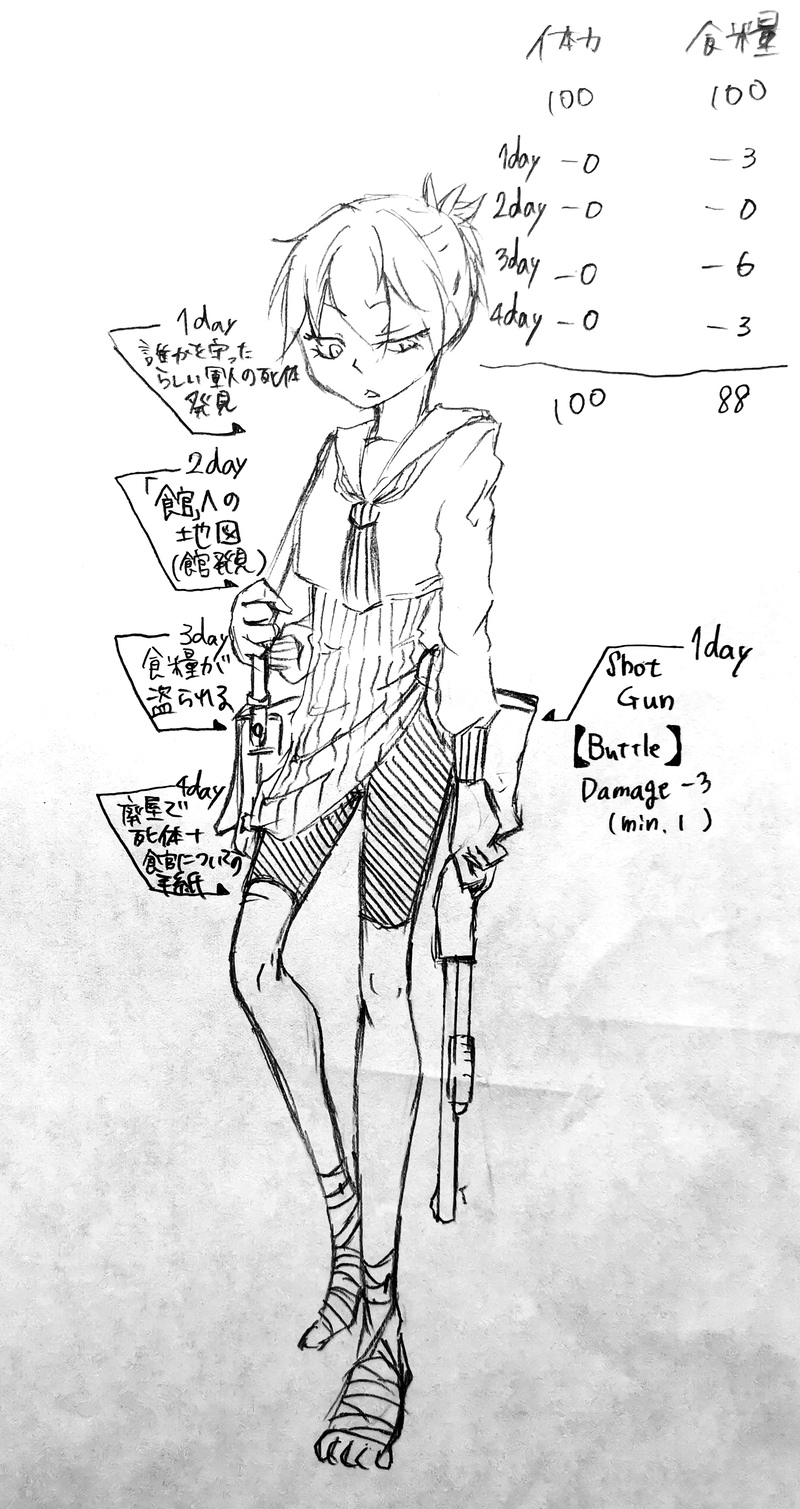 体力 食糧
100 100
1day -0 -3
2day -0 -0
3day -0 -6
4day -0 -3
100 88
1day
誰かを守った
らしい軍人の死体
発見
2day
「館」への
地図
(館発見)
3day
食糧が
盗られる
4day
廃屋で
死体+
館についての
手紙
1day
Shot
Gun
【Buttle】
Damage -3
(min. 1)